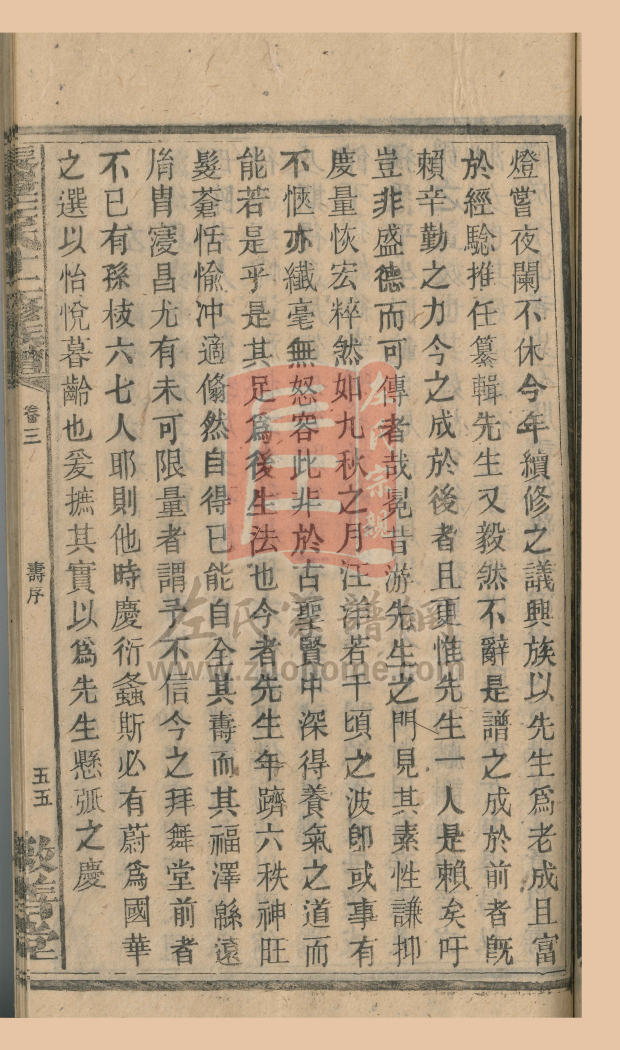 燈嘗夜闌不休今年續修之議興族以先生爲老成且富
於經騐推任纂輯先生又毅然不辭是譜之成於前者旣
賴辛勤之力今之成於後者且更惟先生一人是賴矣吁
豈非盛德而可傳者哉冕昔游先生之門見其素性謙抑
度量恢宏粹然如九秋之月汪洋若千頃之波卽或事有
不愜亦纖毫無怒容此非於古聖賢中深得養氣之道而
能若是乎是其足爲後生法也今者先生年躋六秩神旺
髮蒼恬愉冲適翛然自得已能自全其壽而其福澤緜遠
胤胄寖昌尤有未可限量者謂予不信今之拜舞堂前者
不已有孫枝六七人耶則他時慶衍螽斯必有蔚爲國華
之選以怡悅暮齡也爰摭其實以爲先生懸弧之慶
卷三
壽序
五五
敦善堂
左氏家譜網
www.zhohome.com